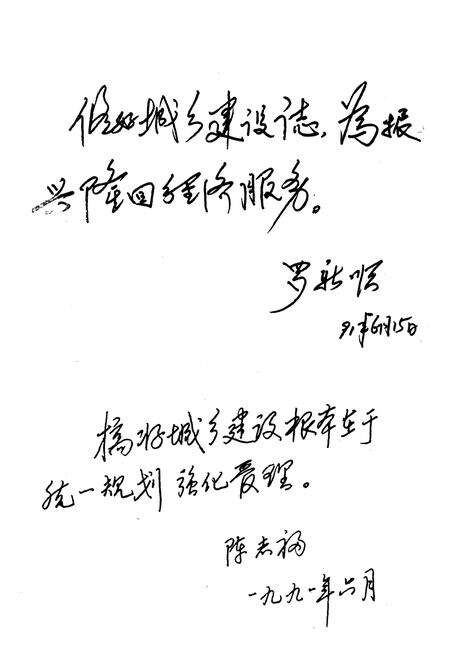 修好城乡建设誌,为振
兴隆回经济服务。
罗新顺
91年6月15日
搞好城乡建设根本在于
统一规划 强化管理。
陈志福
一九九一年六月